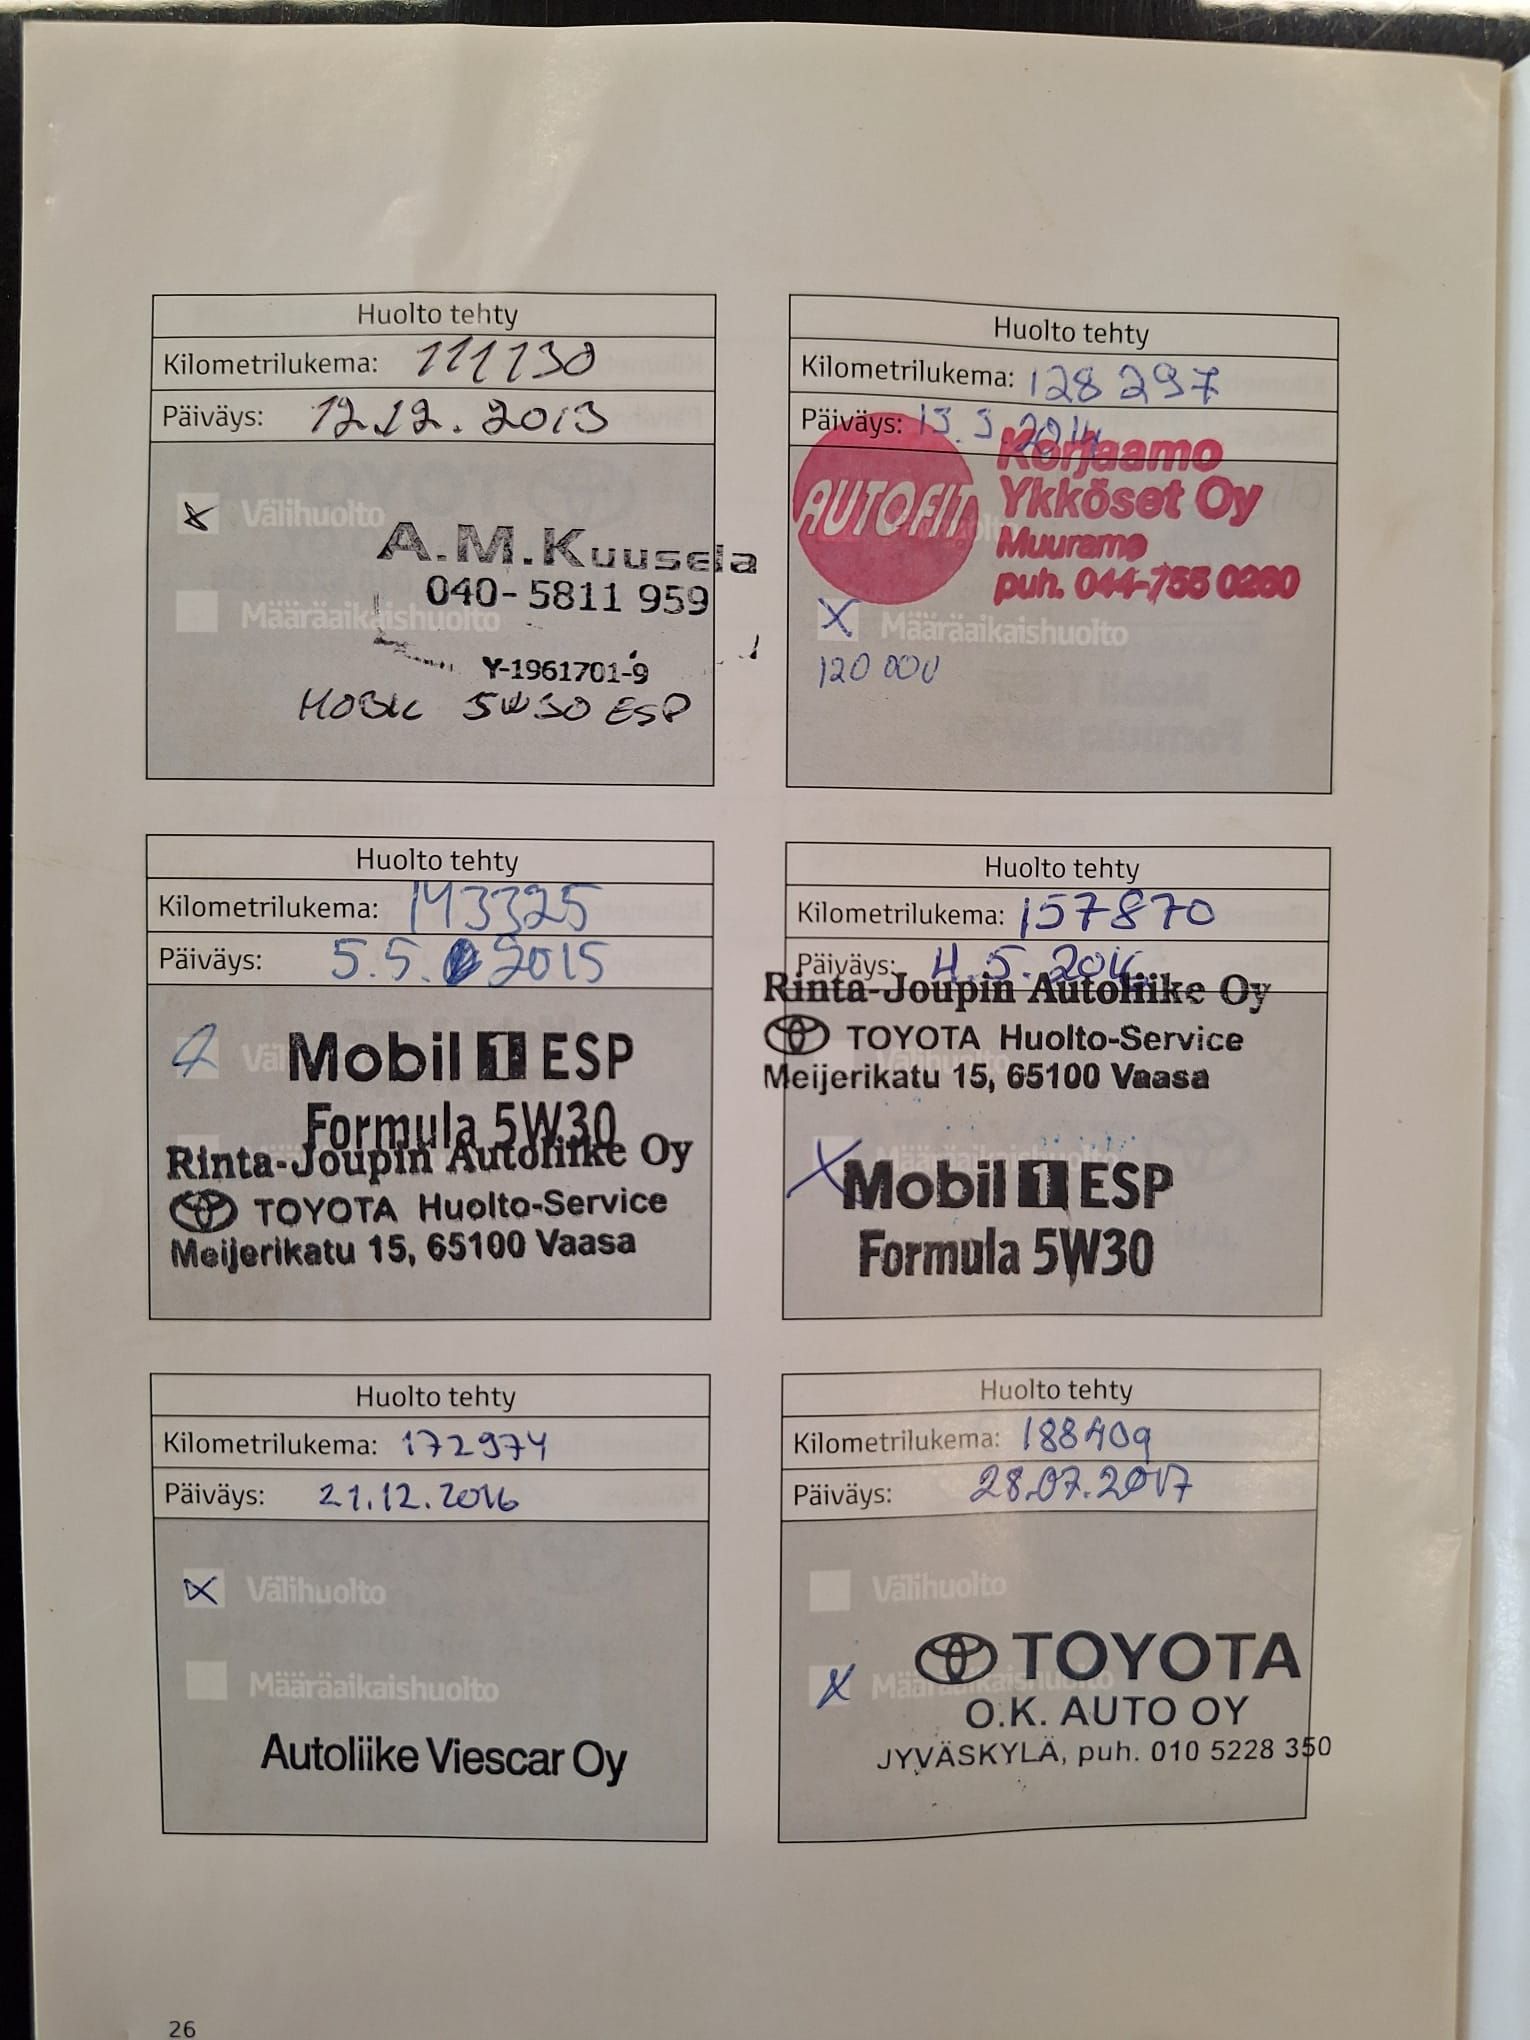 Huolto tehty
Kilometrilukema: 111130
Päiväys: 12.12.2013
Välihuolto
A.M.Kuusela
040-5811 959
Määräaikaishuolto
Y-1961701-9
MOBIL 5W30 ESP
Huolto tehty
Kilometrilukema: 128 297
Päiväys: 13.3.2014
AUTOFIT
Korjaamo
Ykköset Oy
Muurame
puh. 044-755 0260
Määräaikaishuolto
120 000
Huolto tehty
Kilometrilukema: 143325
Päiväys: 5.5. 2015
Mobil 1 ESP
Formula 5W30
Rinta-Joupin Autoliike Oy
TOYOTA Huolto-Service
Meijerikatu 15, 65100 Vaasa
Huolto tehty
Kilometrilukema: 157870
Päiväys: 4.5.2016
Rinta-Joupin Autoliike Oy
TOYOTA Huolto-Service
Välihuolto
Meijerikatu 15, 65100 Vaasa
Määräaikaishuolto
Mobil 1 ESP
Formula 5W30
Huolto tehty
Kilometrilukema: 172974
Päiväys: 21.12.2016
Välihuolto
Määräaikaishuolto
Autoliike Viescar Oy
Huolto tehty
Kilometrilukema: 188409
Päiväys: 28.07.2017
Välihuolto
TOYOTA
Määräaikaishuolto
O.K. AUTO OY
JYVÄSKYLÄ, puh. 010 5228 350
26